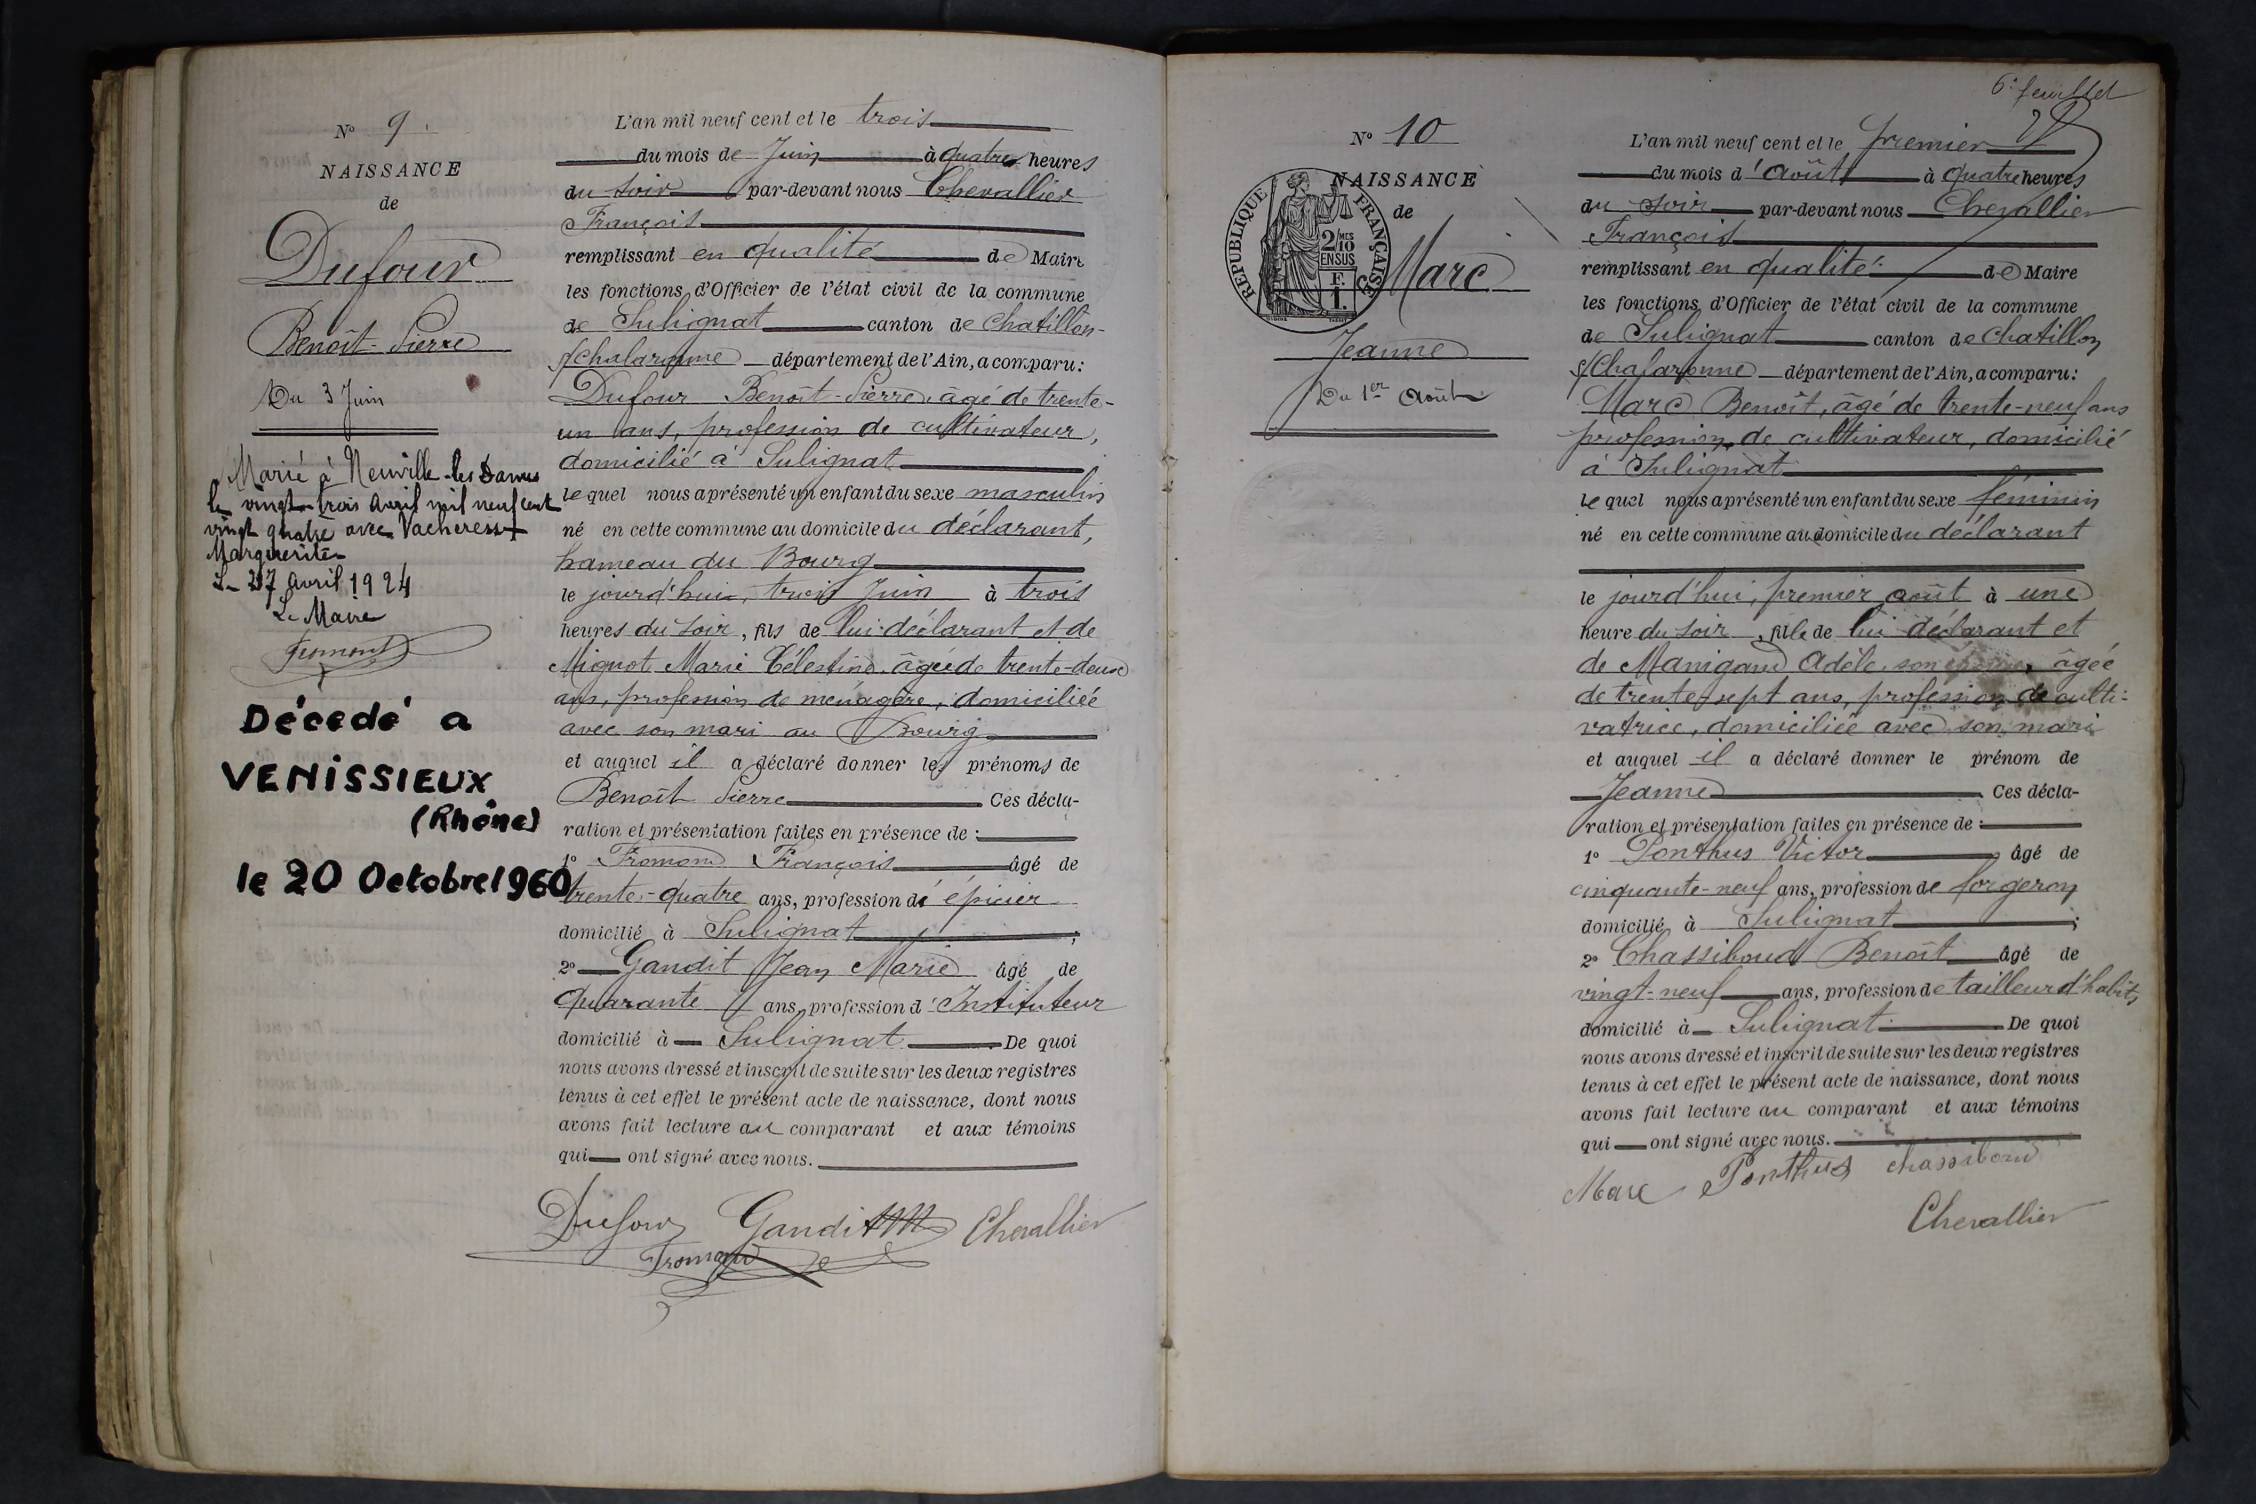 N° 9.
NAISSANCE
de
Dufour
Benoît-Pierre
Du 3 Juin
Marié à Neuville-les-Dames
le vingt-trois avril mil neuf cent
vingt quatre avec Vacheresse
Marguerite
Le 27 avril 1924
Le Maire
Fromont
Décedé a
VENISSIEUX
(Rhône)
le 20 Octobre 1960
L'an mil neuf cent et le trois
du mois de Juin à quatre heures
du soir par-devant nous Chevallier
François
remplissant en qualité de Maire
les fonctions d'Officier de l'état civil de la commune
de Sulignat canton de Chatillon-
s/Chalaronne département de l'Ain, a comparu:
Dufour Benoît-Pierre, âgé de trente-
un ans, profession de cultivateur,
domicilié à Sulignat
lequel nous a présenté un enfant du sexe masculin
né en cette commune au domicile du déclarant,
hameau du Bourg
le jourd'hui, trois Juin à trois
heures du soir, fils de lui déclarant et de
Mignot Marie Célestine âgée de trente-deux
ans, profession de menagère, domiciliée
avec son mari au Bourg
et auquel il a déclaré donner les prénoms de
Benoît Pierre Ces décla-
ration et présentation faites en présence de :
1° Fromond François âgé de
trente-quatre ans, profession d'épicier
domicilié à Sulignat ;
2° Gandit Jean Marie âgé de
quarante ans, profession d'Instituteur
domicilié à Sulignat. De quoi
nous avons dressé et inscrit de suite sur les deux registres
tenus à cet effet le présent acte de naissance, dont nous
avons fait lecture au comparant et aux témoins
qui ont signé avec nous.
Dufour Gandit Chevallier
Fromond
6e feuillet
N° 10
NAISSANCE
de
REPUBLIQUE FRANÇAISE
2/10 MES
EN SUS
F.
1.
Marc
Jeanne
Du 1er Août
L'an mil neuf cent et le premier
du mois d'Août à quatre heures
du soir par-devant nous Chevallier
François
remplissant en qualité de Maire
les fonctions d'Officier de l'état civil de la commune
de Sulignat canton de Chatillon
s/Chalaronne département de l'Ain, a comparu:
Marc Benoît, âgé de trente-neuf ans
profession de cultivateur, domicilié
à Sulignat
lequel nous a présenté un enfant du sexe féminin
né en cette commune au domicile du déclarant
le jourd'hui, premier août à une
heure du soir, fille de lui déclarant et
de Manigand Adèle, son épouse, âgée
de trente-sept ans, profession de culti-
vatrice, domiciliée avec son mari
et auquel il a déclaré donner le prénom de
Jeanne. Ces décla-
ration et présentation faites en présence de :
1° Ponthus Victor âgé de
cinquante-neuf ans, profession de forgeron
domicilié à Sulignat ;
2° Chassiboud Benoît âgé de
vingt-neuf ans, profession de tailleur d'habits
domicilié à Sulignat. De quoi
nous avons dressé et inscrit de suite sur les deux registres
tenus à cet effet le présent acte de naissance, dont nous
avons fait lecture au comparant et aux témoins
qui ont signé avec nous.
Marc Ponthus chassiboud
Chevallier